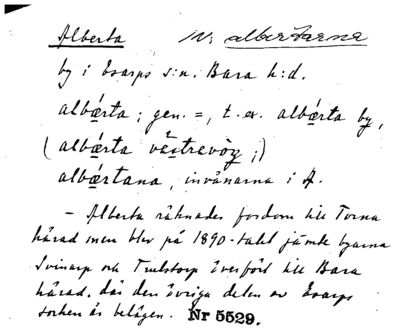 Alberta    IV: albertarna
by i Esarps s:n. Bara h:d.
albǽrta; gen. =, t. ex. albǽrta by,
(albǽrta västrevǫg;)
albǽrtana, invånarna i A.
— Alberta räknades fordom till Torna
härad men blev på 1890-talet jämte byarna
Svinarp och Truelstorp överförd till Bara
härad, där den övriga delen av Esarps
socken är belägen. Nr 5529.